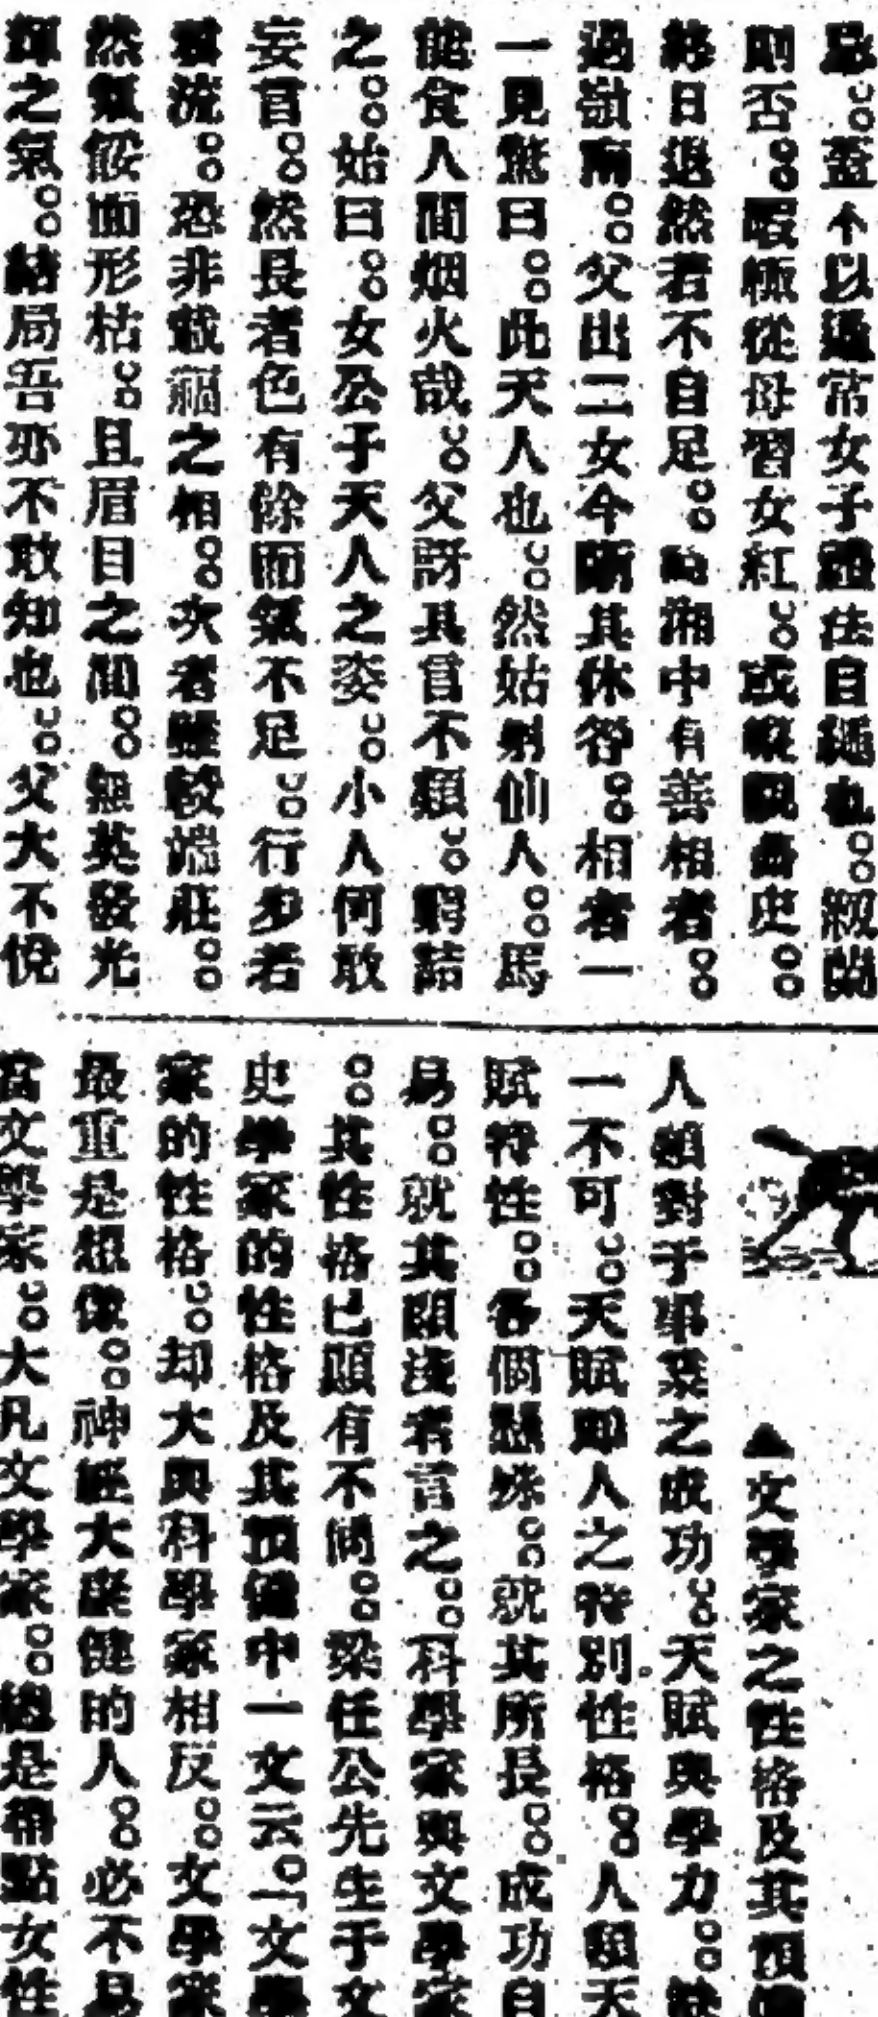 。蓋不以通常女子禮法自繩也。紉蘭
則否。暇輒從母習女紅。或縱觀書史。
終日退然若不自足。時湘中有善相者。
過嶺南。父出二女令陳其休咎。相者一
一見驚曰。此天人也。然姑射仙人。焉
能食人間烟火哉。父訝其言不類。窮詰
之。始曰。女公子天人之姿。小人何敢
妄言。然長者色有餘而氣不足。行步若
流。恐非載福之相。次者雖較端莊。
然氣餒面形枯。且眉目之間。無英發光
輝之氣。結局吾亦不敢知也。父大不悅
▲文學家之性格及其預備
人類對于事業之成功。天賦與學力。缺
一不可。天賦即人之特別性格。人類天
賦特性。各個懸殊。就其所長。成功自
易。就其顯淺者言之。科學家與文學家
。其性格已顯有不同。梁任公先生于文
史學家的性格及其預備中一文云。「文學
家的性格。却大與科學家相反。文學家
最重是想像。神經大康健的人。必不易
當文學家。大凡文學家。總是帶點女性